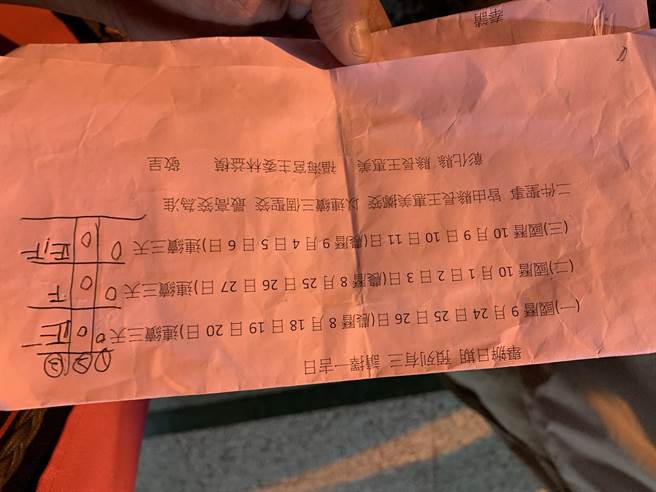 舉辦日期 預列有三 請擇一吉日
① ② ③
(一)國曆 9 月 24 日 25 日 26 日(農曆 8 月 18 日 19 日 20 日)連續三天 0 0
(二)國曆 10 月 1 日 2 日 3 日(農曆 8 月 25 日 26 日 27 日)連續三天 0 0
(三)國曆 10 月 9 日 10 日 11 日(農曆 9 月 4 日 5 日 6 日)連續三天 0 0
二件聖事 皆由縣長王惠美擲筊 以連續三個聖筊 最高筊為准
彰化縣 縣長王惠美 福海宮主委林益模 敬呈
奉請